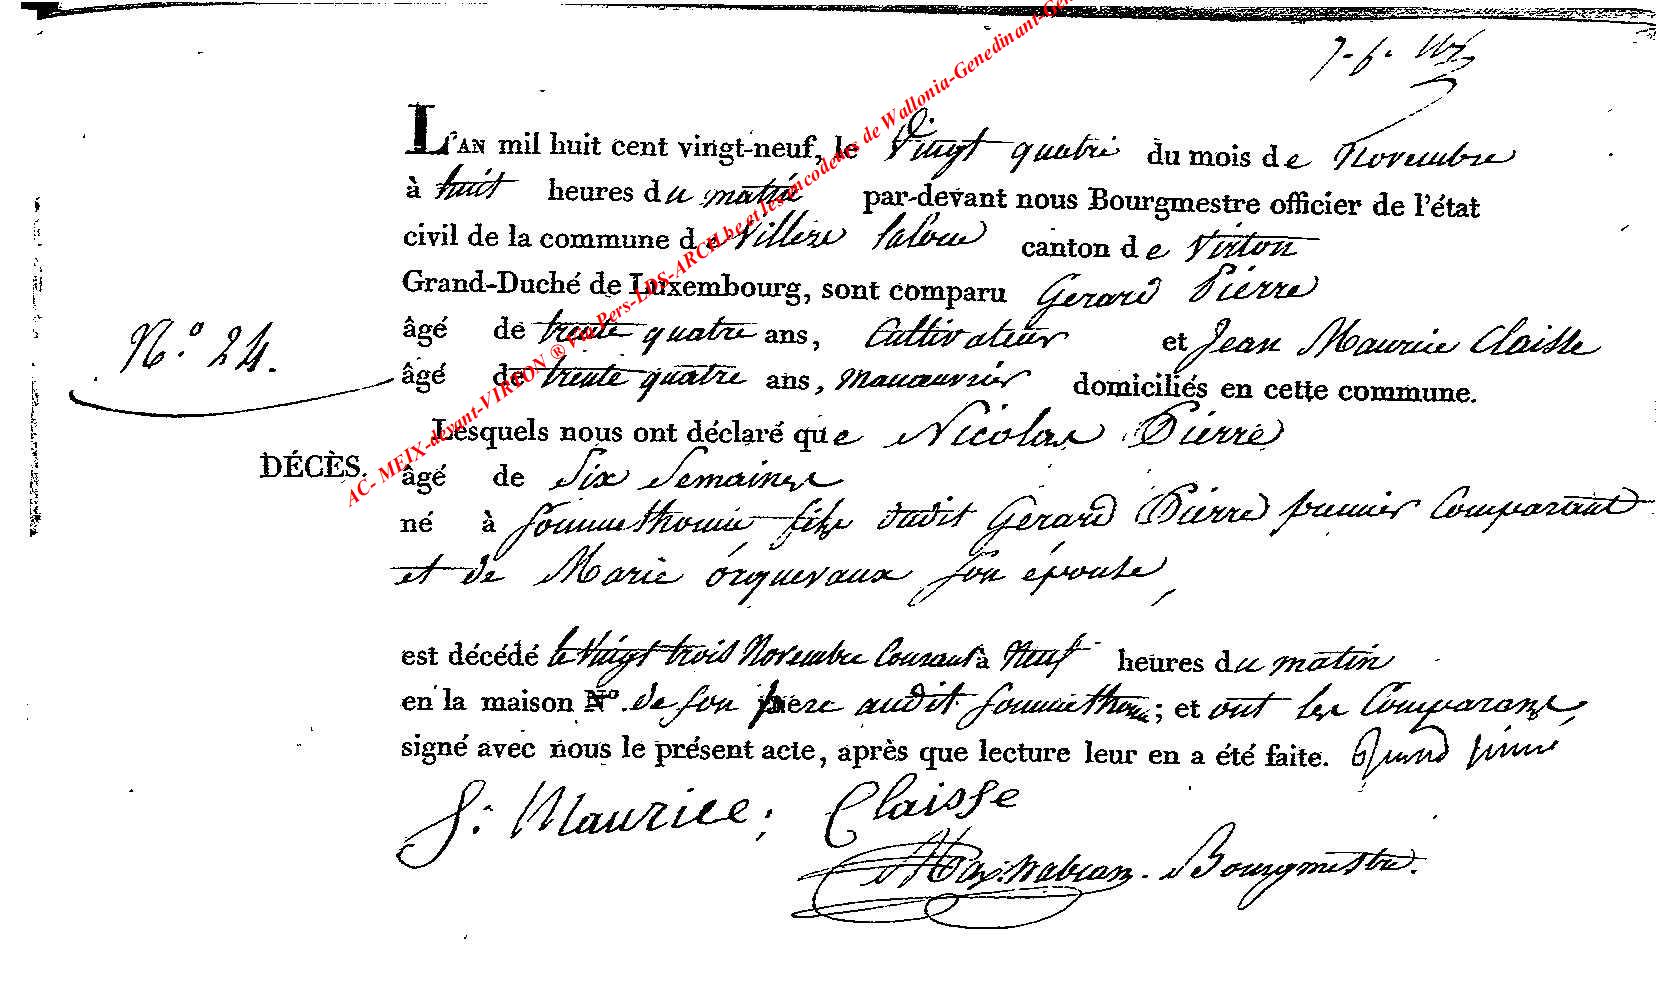 L'AN mil huit cent vingt-neuf, le Vingt quatre du mois de Novembre
à huit heures du matin par-devant nous Bourgmestre officier de l'état
civil de la commune de Villere laloue canton de Virton
Grand-Duché de Luxembourg, sont comparu Gerard Pierre
âgé de trente quatre ans, Cultivateur et Jean Maurice Claisse
N.º 24.
âgé de trente quatre ans, manœuvrier domiciliés en cette commune.
Lesquels nous ont déclaré que Nicolas Pierre
DÉCÈS.
âgé de Six Semaines
né à Sommethonne fils dudit Gerard Pierre premier Comparant
et de Marie orquevaux son épouse,
est décédé le Vingt trois Novembre Courant à Neuf heures du matin
en la maison Nº. de son père audit Sommethonne; et ont les Comparans,
signé avec nous le présent acte, après que lecture leur en a été faite. Gerard pierre
J: Maurice; Claisse
Bourgmestre.
AC- MEIX-devant-VIRTON ® Via Pers-LDS-ARCH.be et les encodeurs de Wallonia-Genedinant-Gen